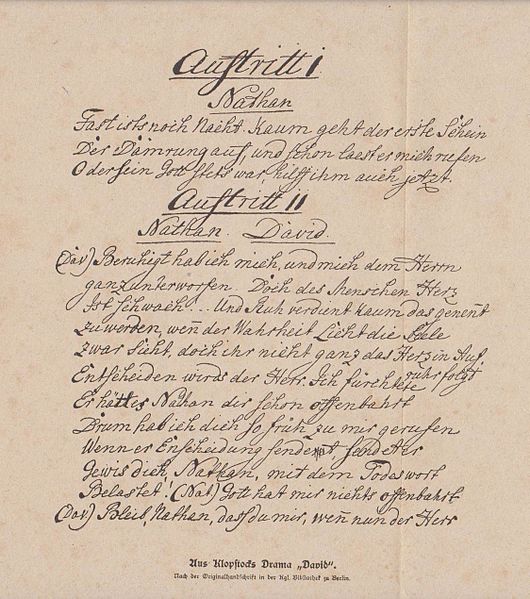 Auftritt I
Nathan
Fast ists noch Nacht. Kaum geht der erste Schein
Der Dämrung auf, und schon laest er mich rufen
O der sein Gott stets war hilf ihm auch jetzt.
Auftritt II
Nathan. David.
(Dav) Beruhigt hab ich mich, und mich dem Herrn
ganz unterworfen. Doch des Menschen Herz
Ist schwach ... Und Ruh verdient kaum das genent
zu werden, wen̄ der Wahrheit Licht die Seele
zwar sieht, doch ihr nicht ganz das Herz in Auf
ruhr folgt
Entscheiden wirds der Herr. Ich fürchte
Er hätt es Nathan dir schon offenbahrt
Drum hab ich dich so früh zu mir gerufen
Wenn er Entscheidung sendet er
Gewis dich, Nathan, mit dem Todeswort
Belastet! (Nat) Gott hat mir nichts offenbahrt
(Dav) Bleib, Nathan, dass du mir, wen̄ nun der Herr
Aus Klopstocks Drama „David“.
Nach der Originalhandschrift in der Kgl. Bibliothek zu Berlin.